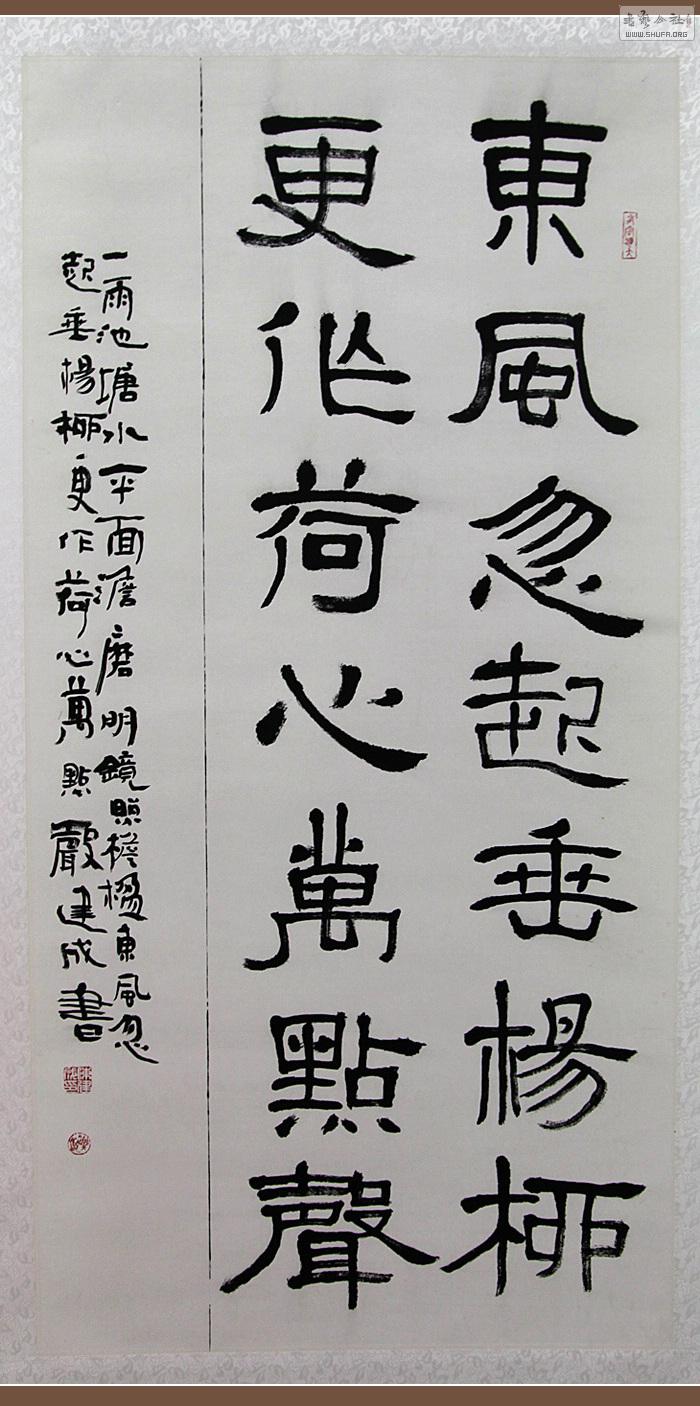 東風忽起垂楊柳
更作荷心萬點聲
一雨池塘水平面澹磨明鏡照檐楹東風忽
起垂楊柳更作荷心萬點聲建成書
书艺公社
WWW.SHUFA.ORG